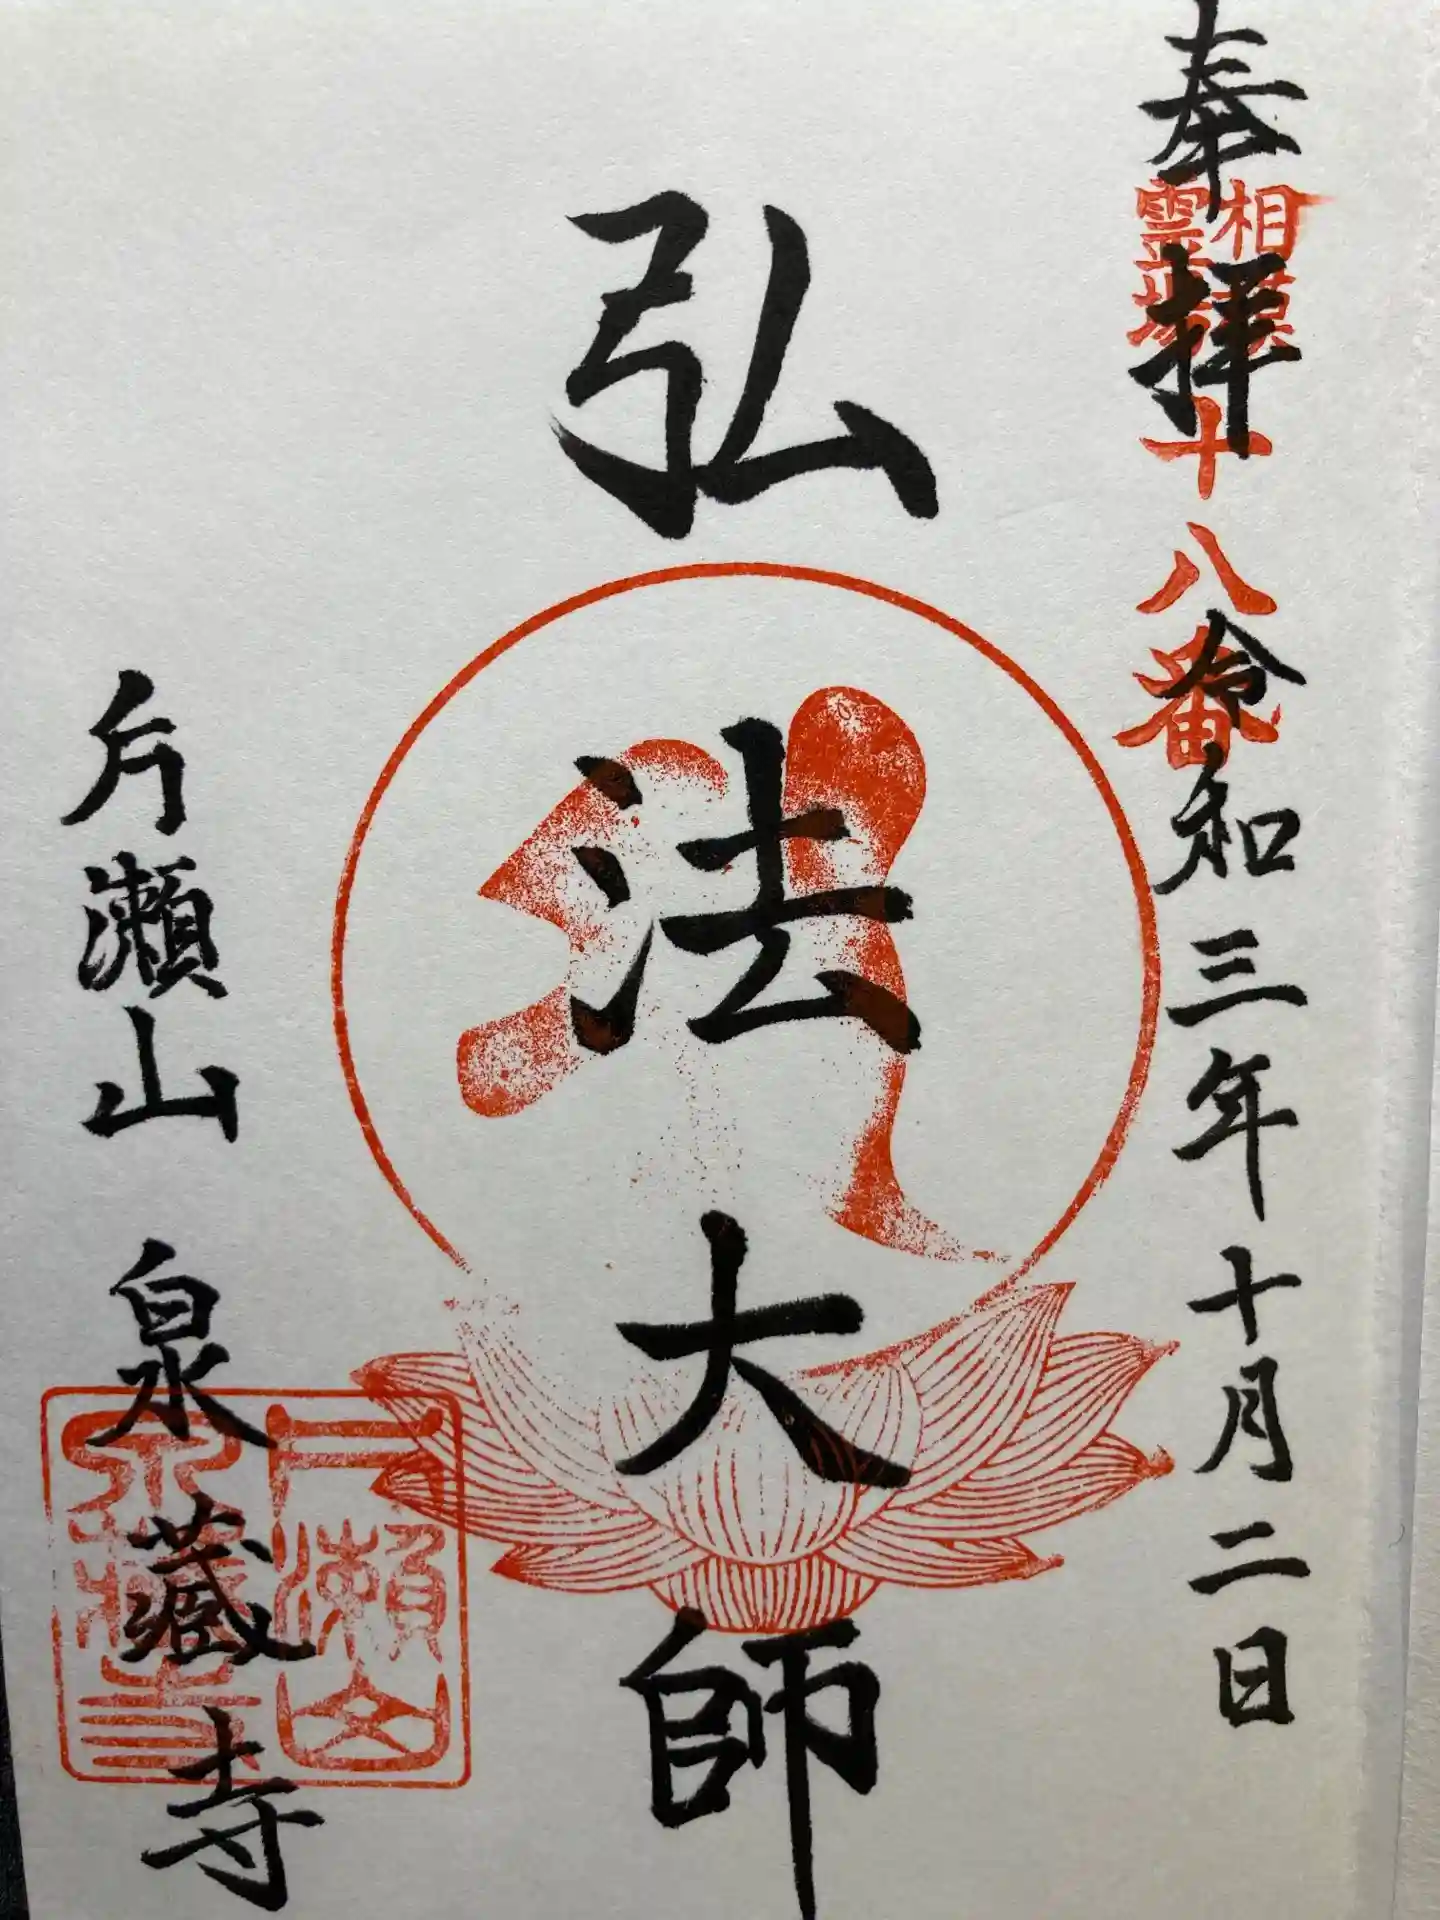 奉拝
相模
霊場
十八番
令和三年十月二日
弘法大師
片瀬山
泉蔵寺
片瀬山
泉蔵寺